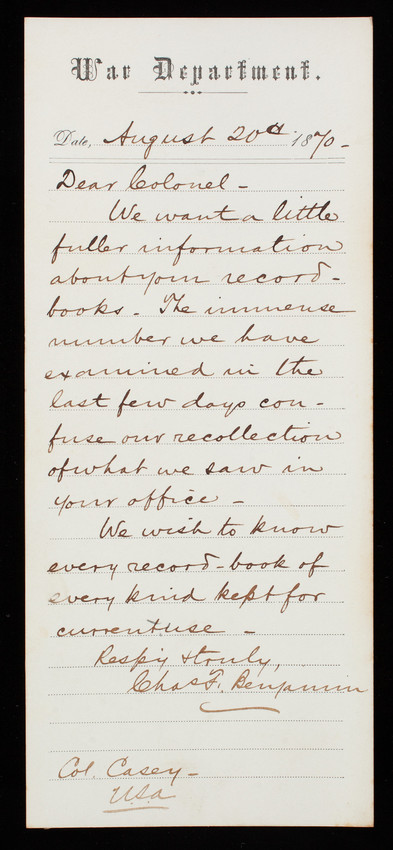 War Department.
Date, August 20th 1870-
Dear Colonel -
We want a little
fuller information
about your record-
books. The immense
number we have
examined in the
last few days con-
fuse our recollection
of what we saw in
your office -
We wish to know
every record-book of
every kind kept for
current use -
Respy & truly,
Chas F. Benjamin
Col. Casey -
U.S.a